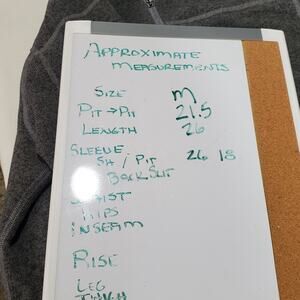 APPROXIMATE
MEASUREMENTS
SIZE M
PIT → PIT 21.5
LENGTH 26
SLEEVE
SH / PIT 26 18
BACK SLIT
WAIST
HIPS
INSEAM
RISE
LEG
THIGH